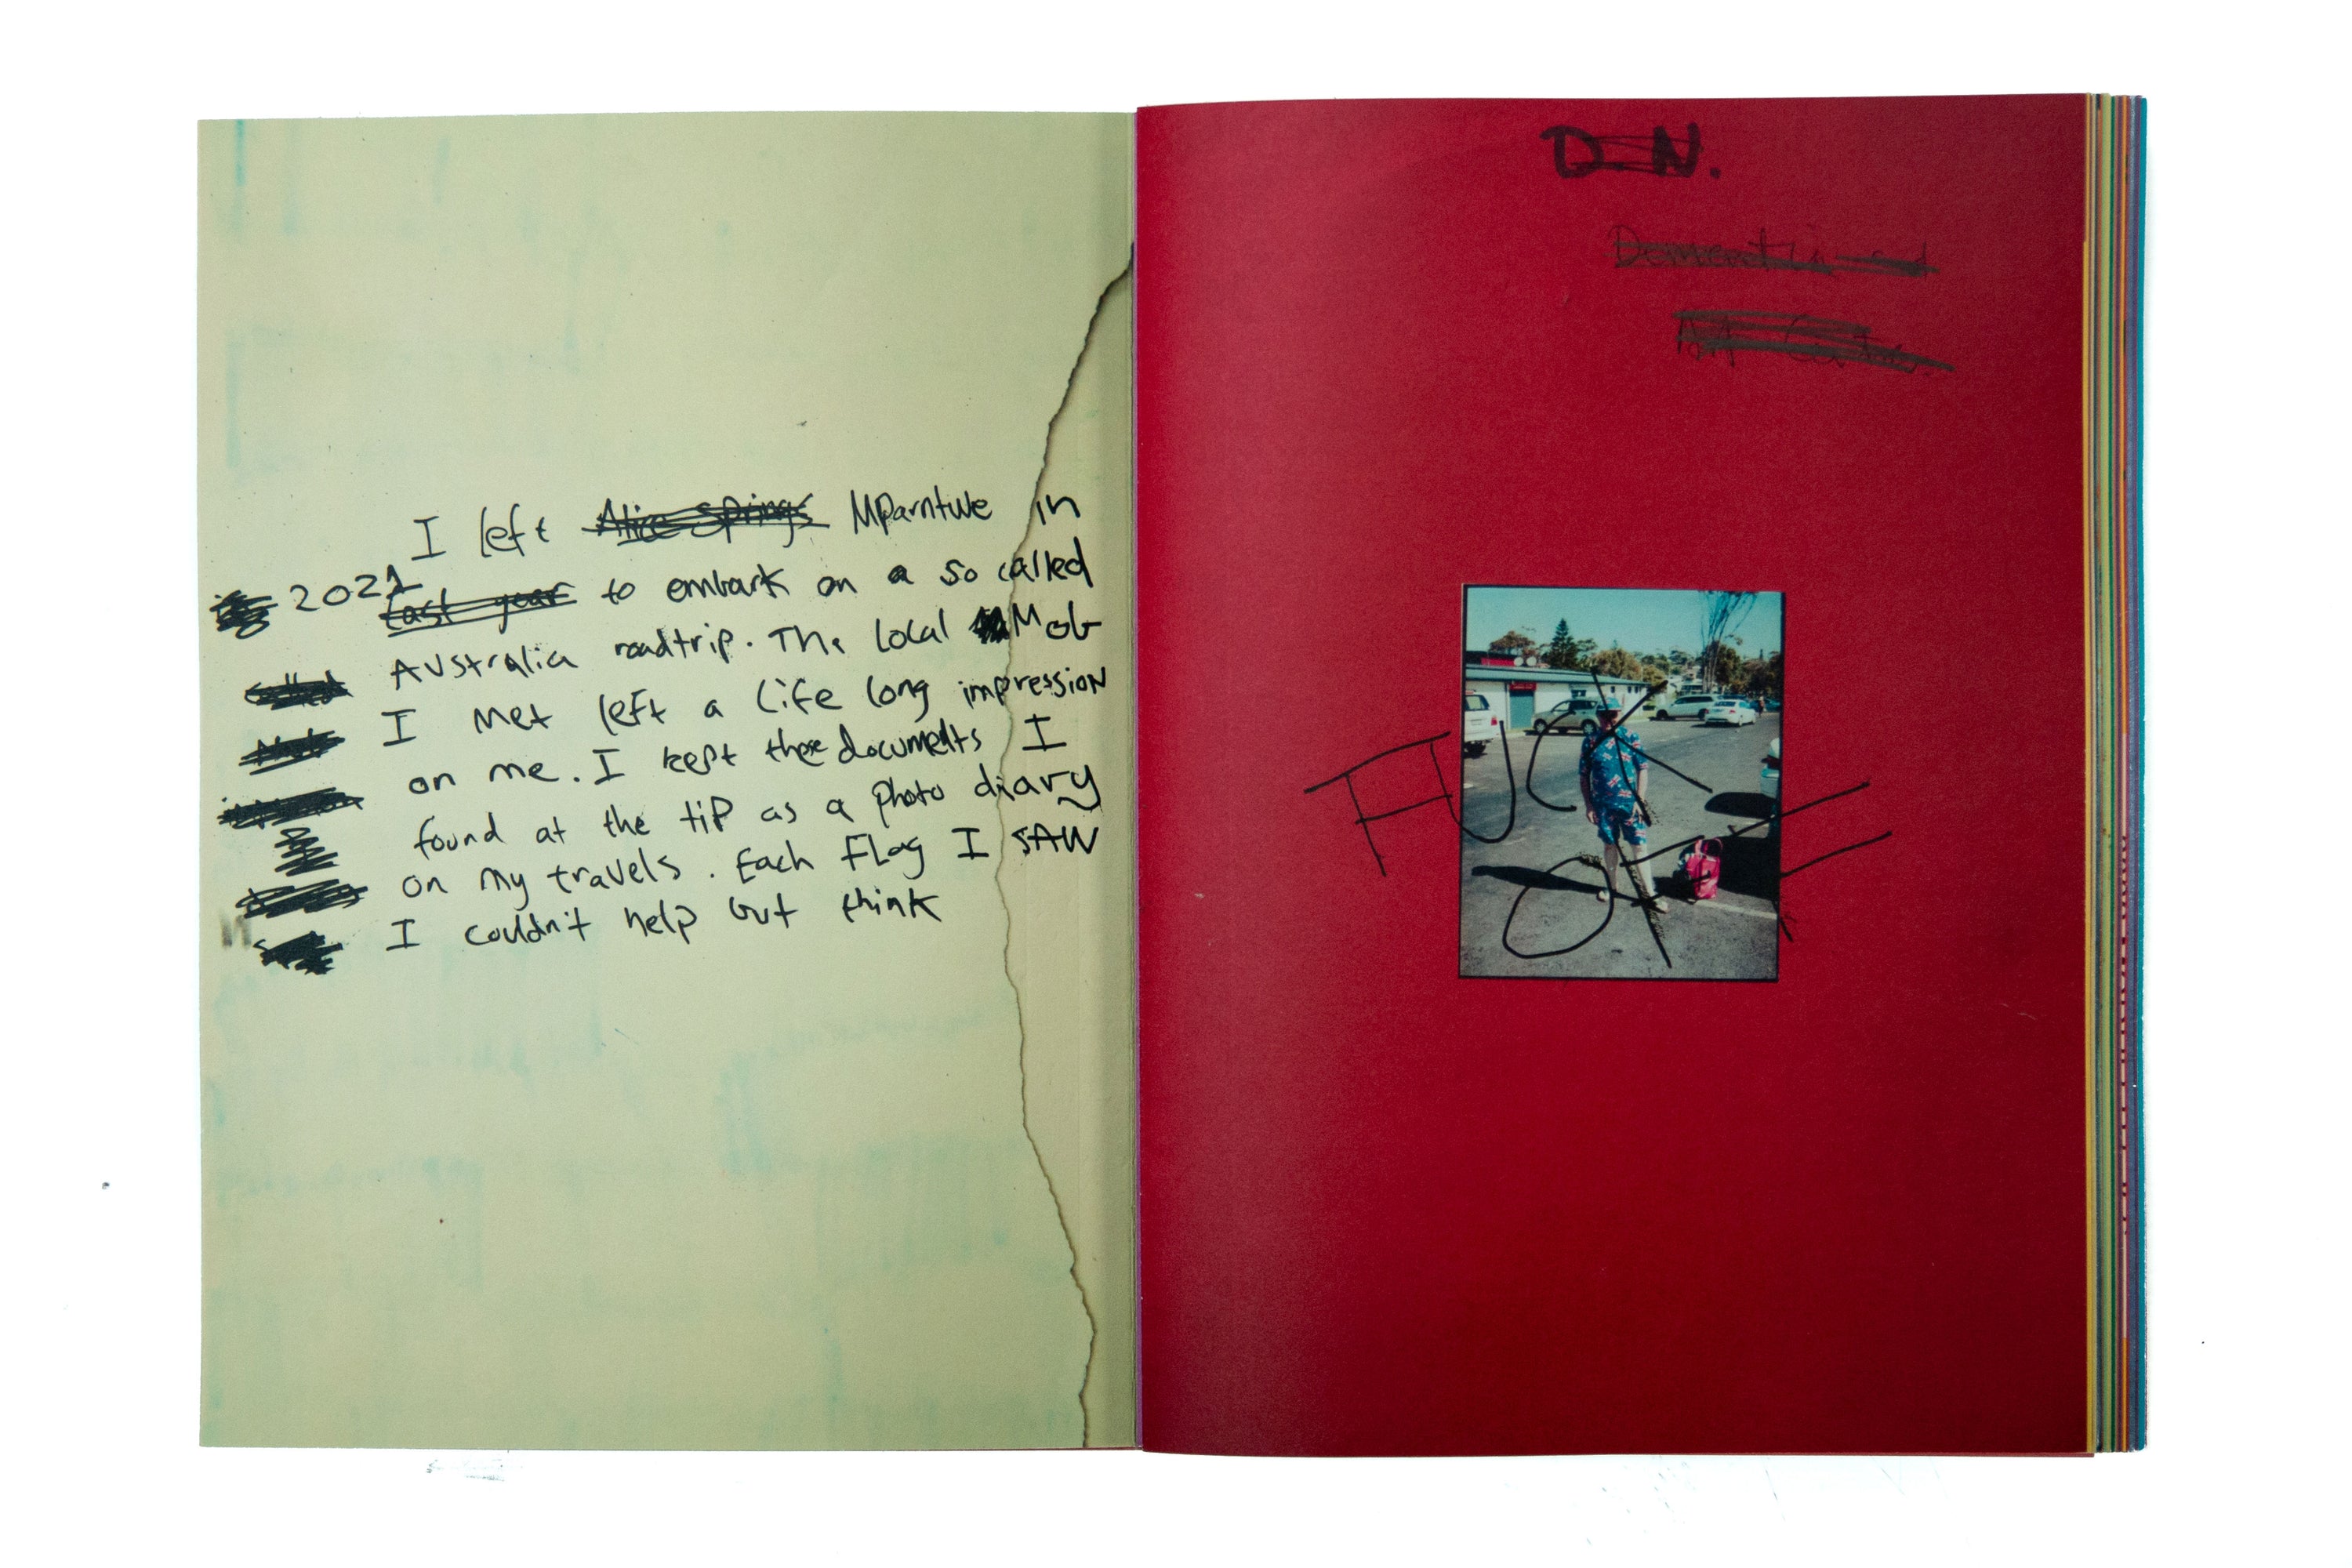 I left Alice Springs Mparntwe in
2021 Last year to embark on a so called
Australia roadtrip. The local Mob
I met left a life long impression
on me. I kept these documents I
found at the tip as a photo diary
on my travels. Each Flag I SAW
I couldn't help but think
D N.
FUCK
OFF